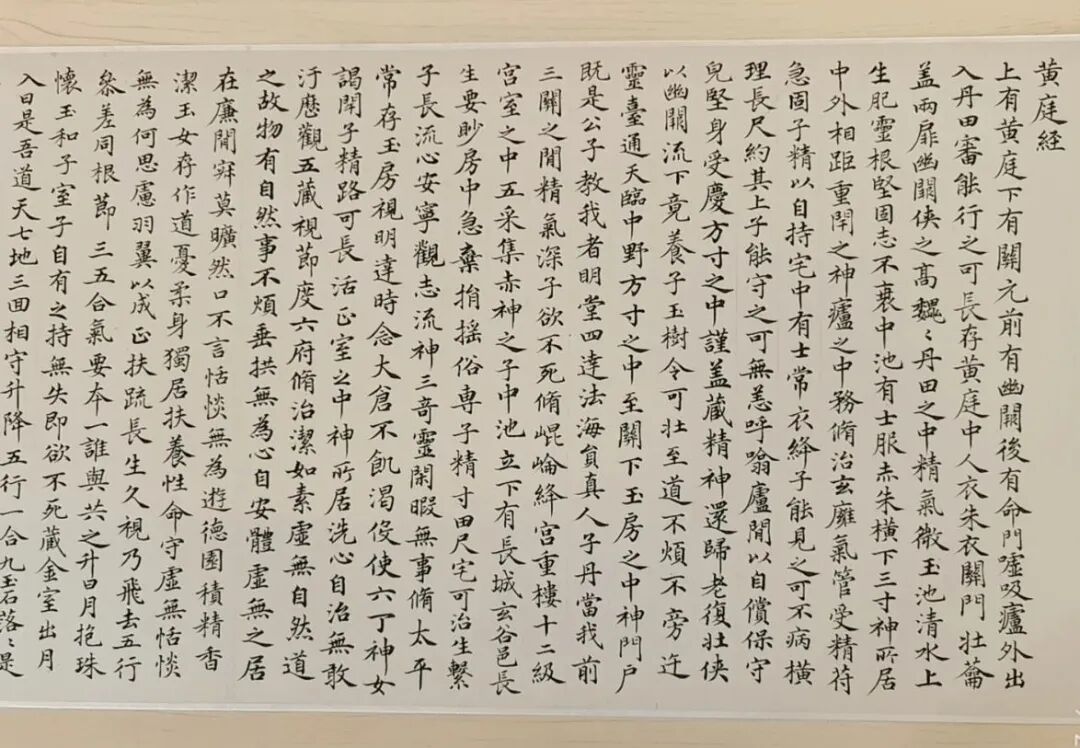 黄庭经
上有黄庭下有關元前有幽闕後有命門噓吸廬外出
入丹田審能行之可長存黄庭中人衣朱衣關門壯蘥
盖兩扉幽闕侠之髙魏〻丹田之中精氣微玉池清水上
生肥靈根堅固志不衰中池有士服赤朱横下三寸神所居
中外相距重閇之神廬之中務脩治玄廱氣管受精苻
急固子精以自持宅中有士常衣絳子能見之可不病横
理長尺約其上子能守之可無恙呼噏廬閒以自償保守
皃堅身受慶方寸之中謹盖藏精神還歸老復壯侠
以幽闕流下竟養子玉樹令可壯至道不煩不旁迕
靈臺通天臨中野方寸之中至關下玉房之中神門户
既是公子教我者明堂四達法海負真人子丹當我前
三關之閒精氣深子欲不死脩崐崘絳宫重樓十二級
宫室之中五采集赤神之子中池立下有長城玄谷邑長
生要眇房中急棄捐揺俗専子精寸田尺宅可治生繫
子長流心安寧觀志流神三竒靈閑暇無事脩太平
常存玉房視明達時念大倉不飢渴役使六丁神女
謁閇子精路可長活正室之中神所居洗心自治無敢
汙歷觀五藏視節度六府脩治潔如素虚無自然道
之故物有自然事不煩垂拱無為心自安體虚無之居
在廉閒寂莫曠然口不言恬惔無為遊德園積精香
潔玉女存作道憂柔身獨居扶養性命守虚無恬惔
無為何思慮羽翼以成正扶疏長生久視乃飛去五行
叅差同根節三五合氣要本一誰與共之升日月抱珠
懷玉和子室子自有之持無失即欲不死藏金室出月
入日是吾道天七地三回相守升降五行一合九玉石落〻是